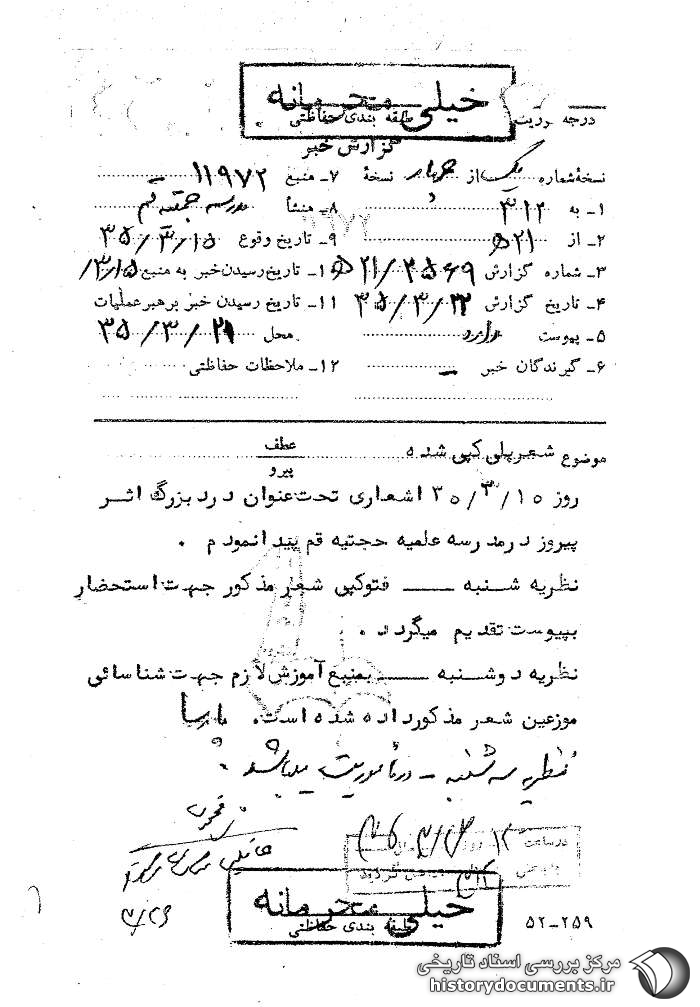 خیلی محرمانه
طبقه بندی حفاظتی
درجه
گزارش خبر
نسخهٔ شماره یک از چهار نسخهٔ
۷ـ منبع ۱۱۹۷۲
۱ـ به ۳۱۲
۸ـ منشأ مدرسه حجتیه قم
۲ـ از ۲۱ ه
۹ـ تاریخ وقوع ۳۵/۳/۱۵
۳ـ شماره گزارش ۲۱/۲۵۶۹ ه
۱۰ـ تاریخ رسیدن خبر به منبع ۳/۱۵/
۴ـ تاریخ گزارش ۳۵/۳/۲۲
۱۱ـ تاریخ رسیدن خبر برهبر عملیات
۵ـ پیوست دارد
محل ۳۵/۳/۲۱
۶ـ گیرندگان خبر ـ
۱۲ـ ملاحظات حفاظتی
موضوع شعر پلی کپی شده
عطف
پیرو
روز ۳۵/۳/۱۵ اشعاری تحت عنوان درد بزرگ اثر
پیروز در مدرسه علمیه حجتیه قم پیدا نمودم .
نظریه شنبه ـــ فتوکپی شعر مذکور جهت استحضار
بپیوست تقدیم میگردد .
نظریه دوشنبه ـــ بمنبع آموزش لازم جهت شناسائی
موزعین شعر مذکور داده شده است. پارسا
نظریه سه شنبه ـ در مأموریت میباشد .
در ساعت ۱۲ روز
گردید
۳/۲۶
خیلی محرمانه
طبقه بندی حفاظتی
۵۲ـ۲۵۹
مرکز بررسی اسناد تاریخی
historydocuments.ir